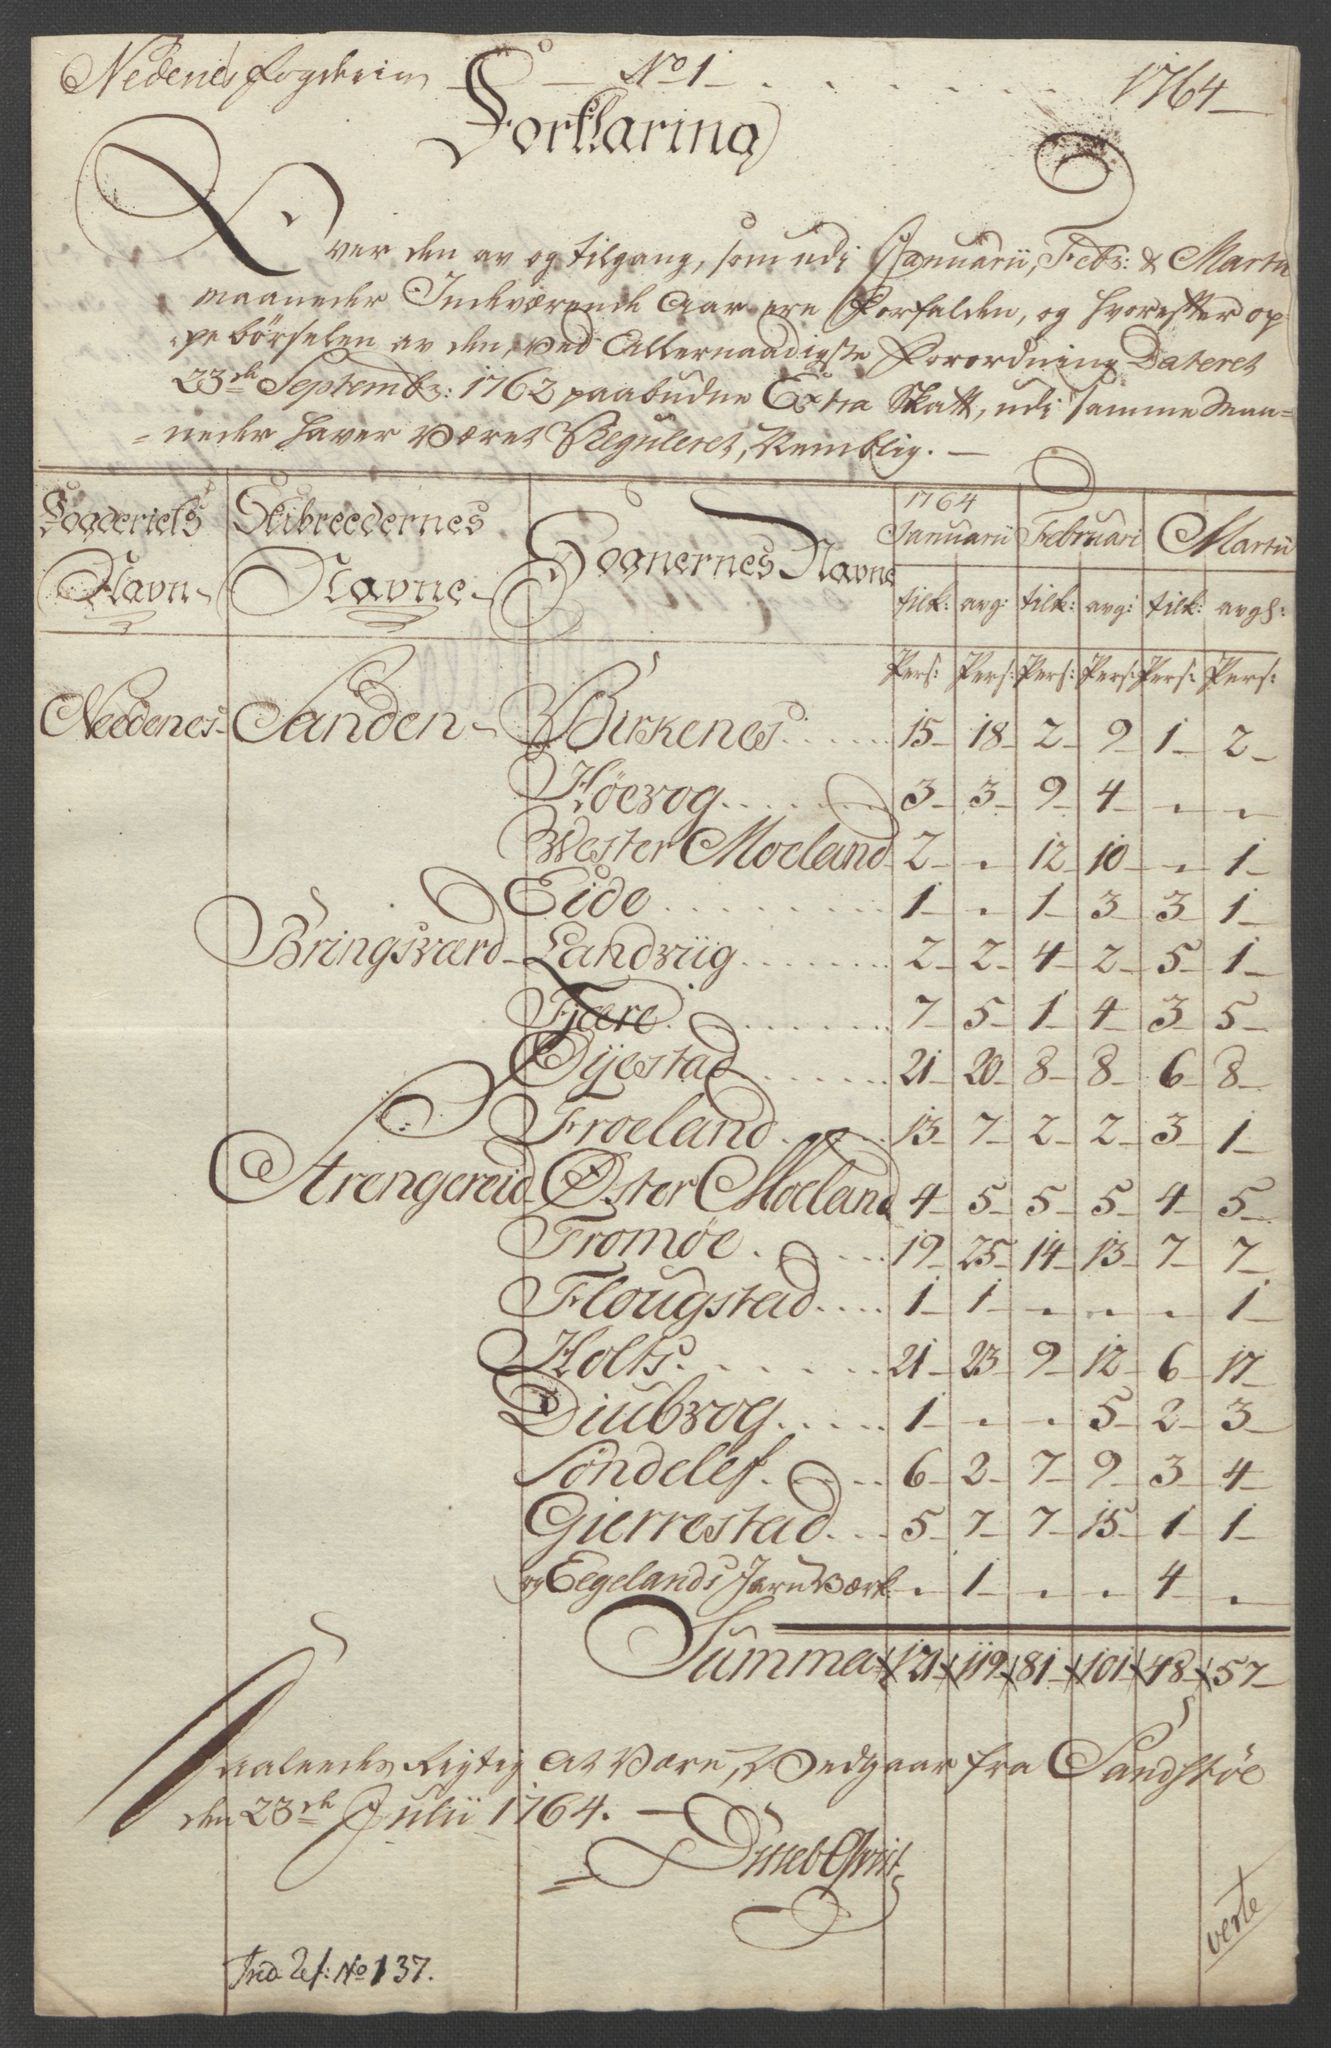 Nedenes fogderie No 1 1764
Forklaring
Over den av og tilgang, som udi Januarii, Febr: & Martii
maaneder Indeværende Aar ere Forfalden, og hvorefter op-
pebörselen av den, ved Allernaadigste Forordning Dateret
23de Septembr: 1762 paabudne Extra Skatt, udi samme Maa-
neder haver Været Reguleret, Nemblig.
Fogderiets Skibreedernes Sognernes Navne 1764 Januarii Februari Martii
Navn Navne
tilk: avg: tilk: avg: tilk: avgh:
Pers: Pers: Pers: Pers: Pers: Pers:
Needenes Sanden Birkenes 15 18 2 9 1 2
Höevog 3 3 9 4 - -
Wester Moeland 2 - 12 10 - 1
Eide 1 - 1 3 3 1
Bringsværd Landviig 2 2 4 2 5 1
Fjære 7 5 1 4 3 5
Öyestad 21 20 8 8 6 8
Froeland 13 7 2 2 3 1
Strengereid Øster Moeland 4 5 5 5 4 5
Tromöe 19 25 14 13 7 7
Flougstad 1 1 - - - 1
Holts 21 23 9 12 6 17
Diubvog 1 - - 5 2 3
Söndelef 6 2 7 9 3 4
Gierrestad 5 7 7 15 1 1
og Eegelands Jern Værk - 1 - - 4 -
Summa 121 119 81 101 48 57
Saaleedes Rigtig At Være, Vedgaar fra Sandstöe
den 23de Julii 1764.
verte
Ind. Ref: No 137.